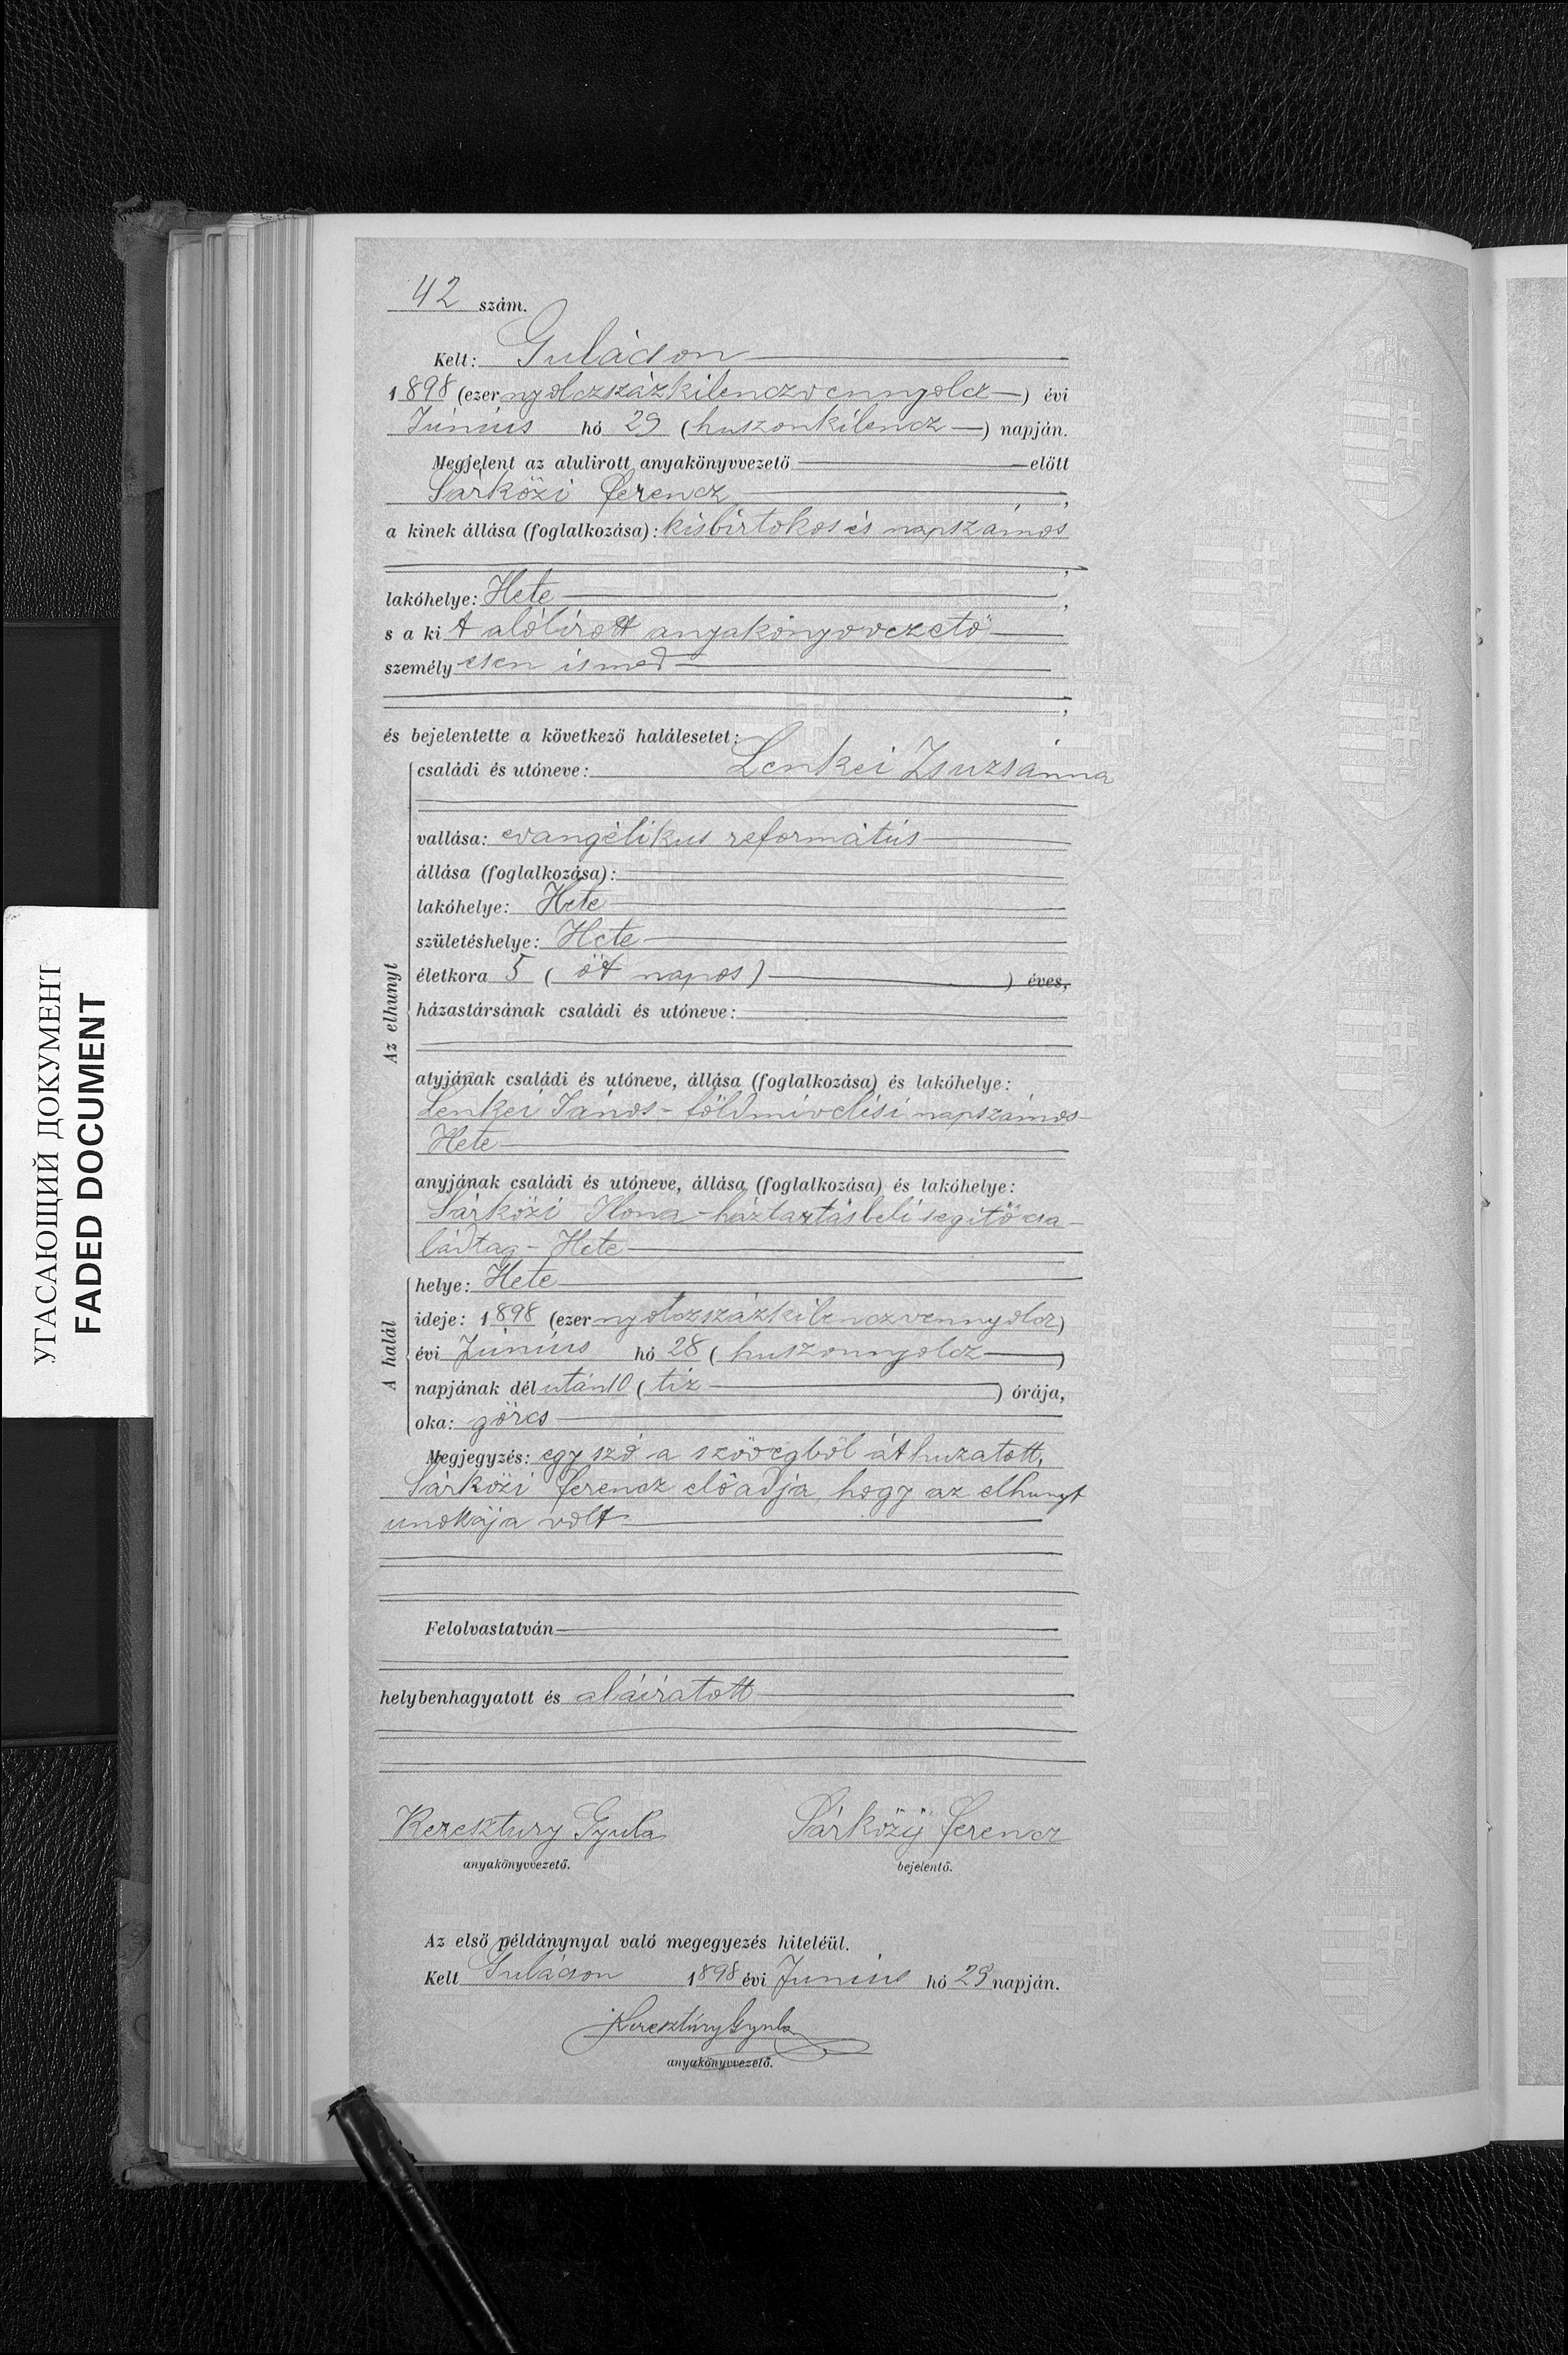 42 szám.
Kelt: Gulácson
1898 (ezernyolczszázkilenczvennyolcz) évi
Június hó 29 (huszonkilencz) napján.
Megjelent az alulirott anyakönyvvezető előtt
Sárközi Ferencz,
a kinek állása (foglalkozása): kisbirtokos és napszámos
,
lakóhelye: Hete,
s a kit alólírott anyakönyvvezető
személyesen ismer
;
és bejelentette a következő halálesetet:
Az elhunyt
családi és utóneve: Lenkei Zsuzsánna
vallása: evangélikus református
állása (foglalkozása):
lakóhelye: Hete
születéshelye: Hete
életkora 5 (öt napos) ) éves,
házastársának családi és utóneve:
atyjának családi és utóneve, állása (foglalkozása) és lakóhelye:
Lenkei János - földmivelési napszámos -
Hete
anyjának családi és utóneve, állása (foglalkozása) és lakóhelye:
Sárközi Ilona - háztartásbeli segítő csa-
ládtag - Hete
A halál
helye: Hete
ideje: 1898 (ezernyolczszázkilenczvennyolcz)
évi Június hó 28 (huszonnyolcz)
napjának délután 10 (tiz) órája,
oka: görcs
Megjegyzés: egy szó a szövegből áthuzatott,
Sárközi Ferencz előadja, hogy az elhunyt
unokája volt
Felolvastatván
helybenhagyatott és aláiratott
Keresztury Gyula Sárközÿ Ferencz
anyakönyvvezető. bejelentő.
Az első példánynyal való megegyezés hiteléül.
Kelt Gulácson 1898 évi Junius hó 29 napján.
Keresztúry Gyula
anyakönyvvezető.
УГАСАЮЩИЙ ДОКУМЕНТ
FADED DOCUMENT